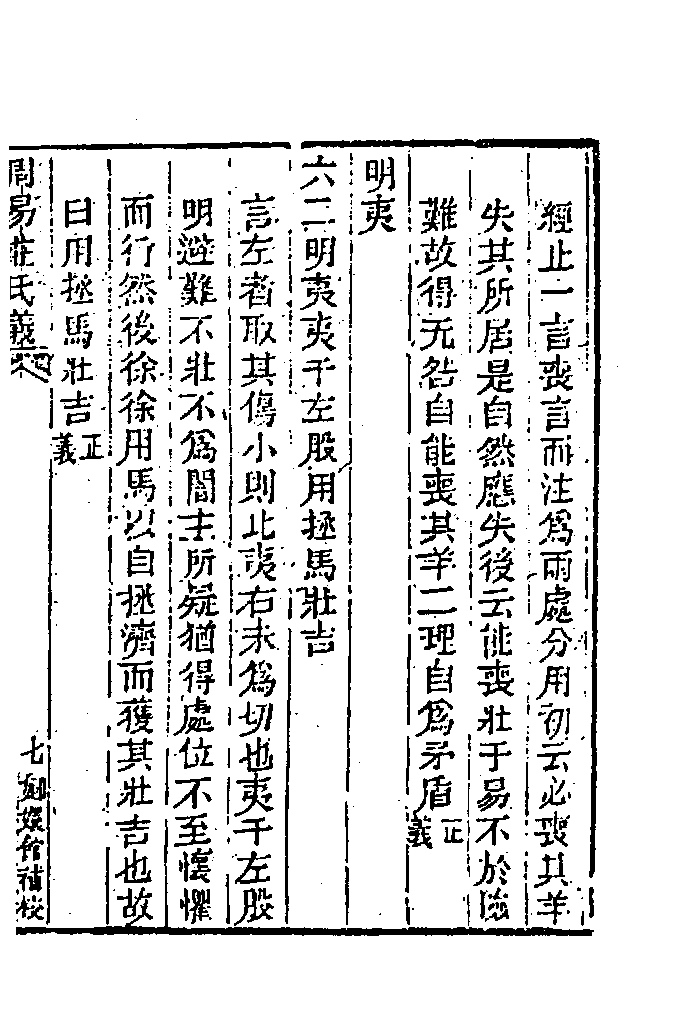 經止一言喪言而注爲兩處分用初云必喪其羊
失其所居是自然應失後云能喪壯于易不於險
難故得无咎自能喪其羊二理自爲矛盾正義
明夷
六二明夷夷于左股用拯馬壯吉
言左者取其傷小則比夷右未爲切也夷于左股
明避難不壯不爲闇主所疑猶得處位不至懷懼
而行然後徐徐用馬以自拯濟而獲其壯吉也故
曰用拯馬壯吉正義
周易莊氏義
七 嫏嬛館補校